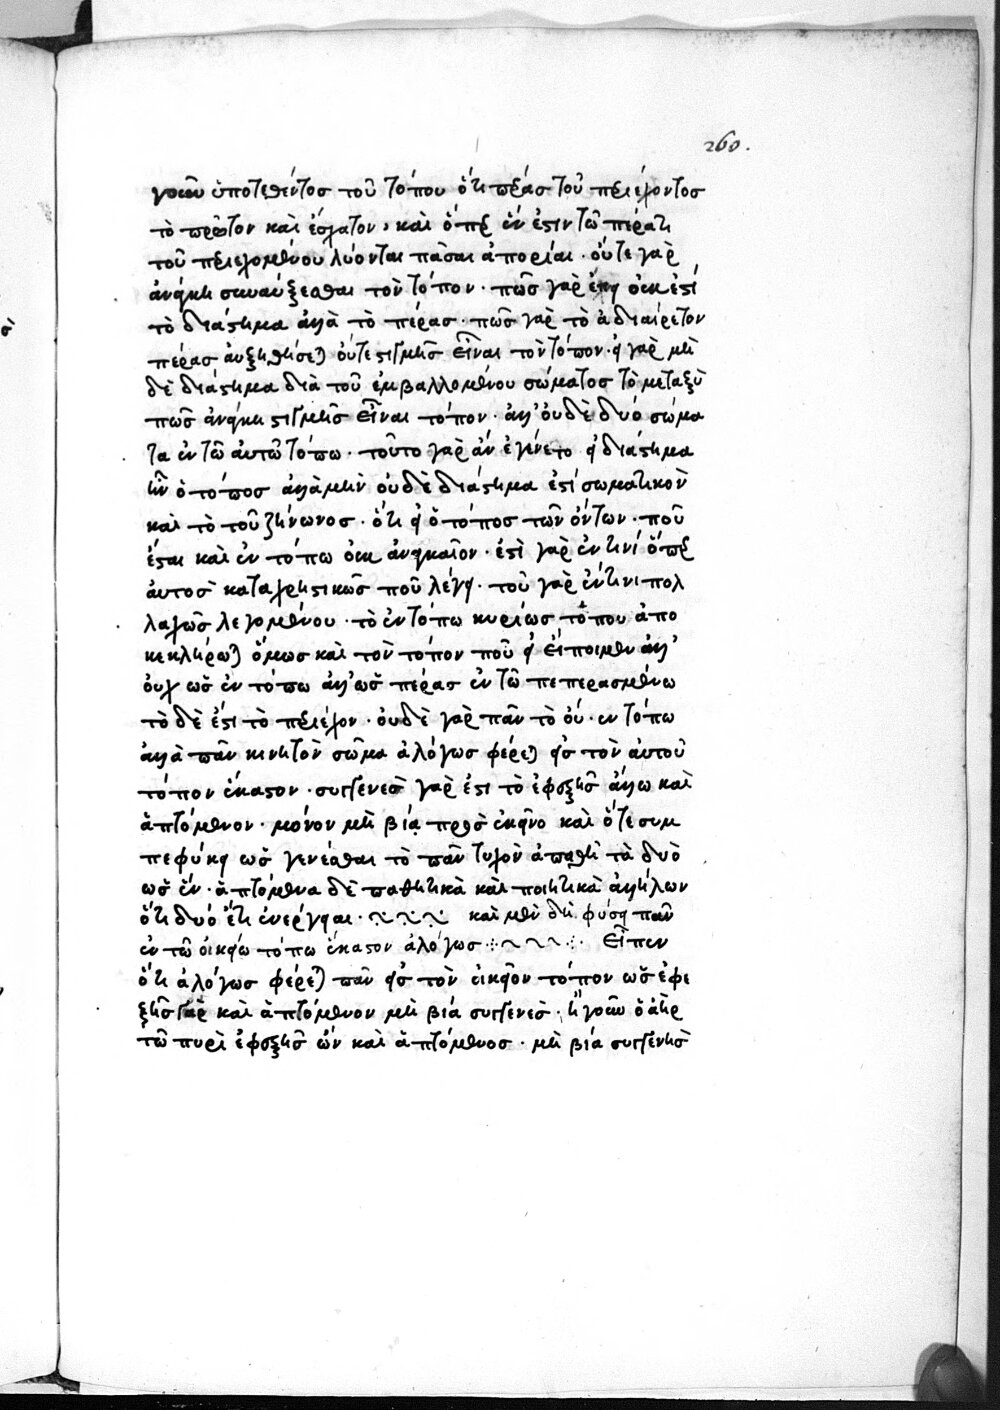 260.
γοῦν ὑποτεθέντος τοῦ τόπου ὅτι πέρας τοῦ περιέχοντος
τὸ πρῶτον καὶ ἔσχατον, καὶ ὅπερ ἕν ἐστιν τῶ πέρατι
τοῦ περιεχομένου λύονται πᾶσαι ἀπορίαι · οὔτε γὰρ
ἀνάγκη συναύξεσθαι τὸν τόπον · πῶς γὰρ ἐπεὶ οὐκ ἐστὶ
τὸ διάστημα ἀλλὰ τὸ πέρας · πῶς γὰρ τὸ ἀδιαίρετον
πέρας αὐξηθήσεται οὔτε στιγμῆς εἶναι τὸν τόπον · εἰ γὰρ μὴ
δὲ διάστημα διὰ τοῦ ἐμβαλλομένου σώματος τὸ μεταξὺ
πῶς ἀνάγκη στιγμῆς εἶναι τόπον · ἀλλ' οὐδὲ δυό σώμα
τα ἐν τῶ αὐτῶ τόπω · τοῦτο γὰρ ἂν ἐγένετο εἰ διάστημα
ἦν ὁ τόπος ἀλλὰ μὴν οὐδὲ διάστημα ἐστὶ σωματικὸν
καὶ τὸ τοῦ ζήνωνος · ὅτι εἰ ὁ τόπος τῶν ὄντων · ποῦ
ἔσται καὶ ἐν τόπω οὐκ ἀναγκαῖον · ἐστὶ γὰρ ἐν τινί ὅπερ
αὐτὸς καταχρηστικῶς ποῦ λέγει · τοῦ γὰρ ἔν τινι πολ
λαχῶς λεγομένου · τὸ ἐν τόπω κυρίως τόπου ἀπο
κεκλήρωται ὅμως καὶ τὸν τόπον ποῦ εἰ εἴποιμεν ἀλλ'
οὐχ ὡς ἐν τόπω ἀλλ' ὡς πέρας ἐν τῶ πεπερασμένω
τὸ δὲ ἐστὶ τὸ περιέχον · οὐδὲ γὰρ πᾶν τὸ ὂν · ἐν τόπω
ἀλλὰ πᾶν κινητὸν σῶμα ἀλόγως φέρεται εἰς τὸν αὐτοῦ
τόπον ἕκαστον · συγγενὲς γὰρ ἐστι τὸ ἐφεξῆς ἄνω καὶ
ἁπτόμενον · μόνον μὴ βία πρὸς ἐκεῖνο καὶ ὅτε συμ
πεφύκει ὡς γενέσθαι τὸ πᾶν τυχὸν ἀπαθῆ τὰ δυὸ
ὡς ἕν · ἁπτόμενα δὲ παθητικὰ καὶ ποιητικὰ ἀλλήλων
ὅτι δυό ἔτι ἐνεργείαι · καὶ μὲν δὴ φύσει πᾶν
ἐν τῶ οἰκείω τόπω ἕκαστον ἀλόγως · Εἶπεν
ὅτι ἀλόγως φέρεται πᾶν εἰς τὸν οἰκεῖον τόπον ὡς ἐφε
ξῆς γὰρ καὶ ἁπτόμενον μὴ βία συγγενές · ἢ γοῦν ὁ ἀὴρ
τῶ πυρὶ ἐφεξῆς ὢν καὶ ἁπτόμενος · μὴ βία συγγενὴς